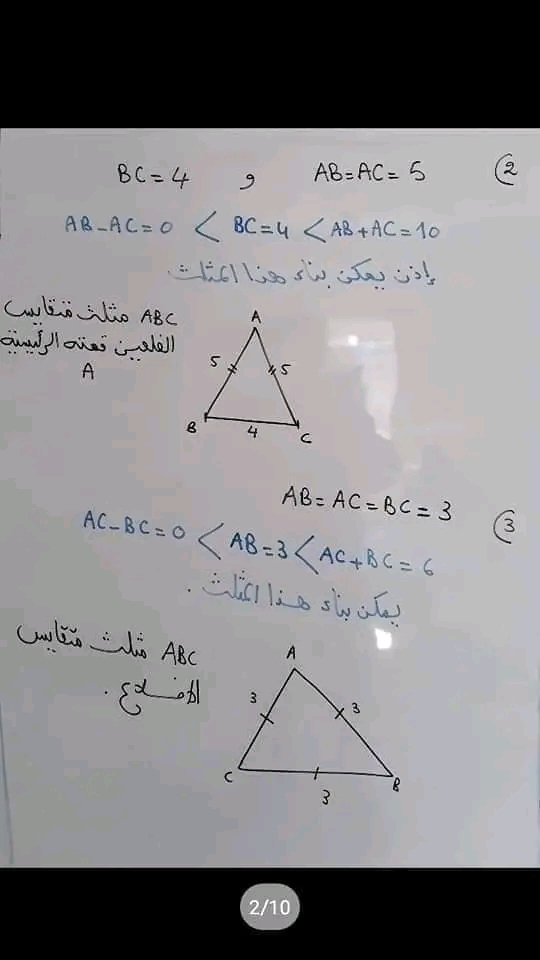 (2 AB=AC=5 و BC=4
AB-AC=0 < BC=4 < AB+AC=10
إذن يمكن بناء هذا المثلث.
ABC مثلث متقايس
الضلعين قمته الرئيسية
A
A
5 5
B 4 C
(3 AB=AC=BC=3
AC-BC=0 < AB=3 < AC+BC=6
يمكن بناء هذا المثلث.
ABC مثلث متقايس
الأضلاع.
A
3 3
C 3 B
2/10